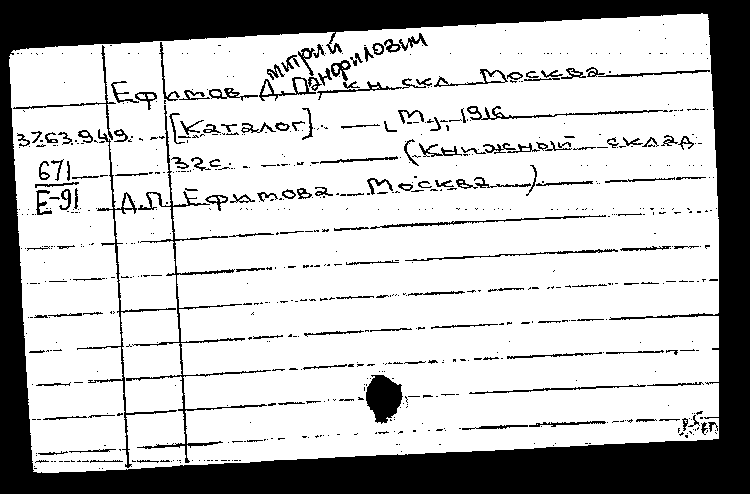 митрий Панфилович
Ефимов, Д. П., кн. скл. Москва.
3763.9.419. [Каталог]. — [М.], 1916.
671 32с. — (Книжный склад
Е-91 Д.П. Ефимова. Москва.)